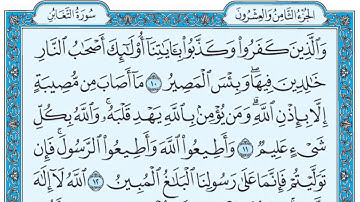 سُورَةُ التَّغَابُن الجُزْءُ الثَّامِنُ وَالعِشْرُونَ
وَالَّذِينَ كَفَرُوا۟ وَكَذَّبُوا۟ بِـَٔايَٰتِنَآ أُو۟لَٰٓئِكَ أَصْحَٰبُ النَّارِ
خَٰلِدِينَ فِيهَا ۖ وَبِئْسَ الْمَصِيرُ ١٠ مَآ أَصَابَ مِن مُّصِيبَةٍ
إِلَّا بِإِذْنِ اللَّهِ ۗ وَمَن يُؤْمِنۢ بِاللَّهِ يَهْدِ قَلْبَهُۥ ۚ وَاللَّهُ بِكُلِّ
شَىْءٍ عَلِيمٌ ١١ وَأَطِيعُوا۟ اللَّهَ وَأَطِيعُوا۟ الرَّسُولَ ۚ فَإِن
تَوَلَّيْتُمْ فَإِنَّمَا عَلَىٰ رَسُولِنَا الْبَلَٰغُ الْمُبِينُ ١٢ اللَّهُ لَآ إِلَٰهَ